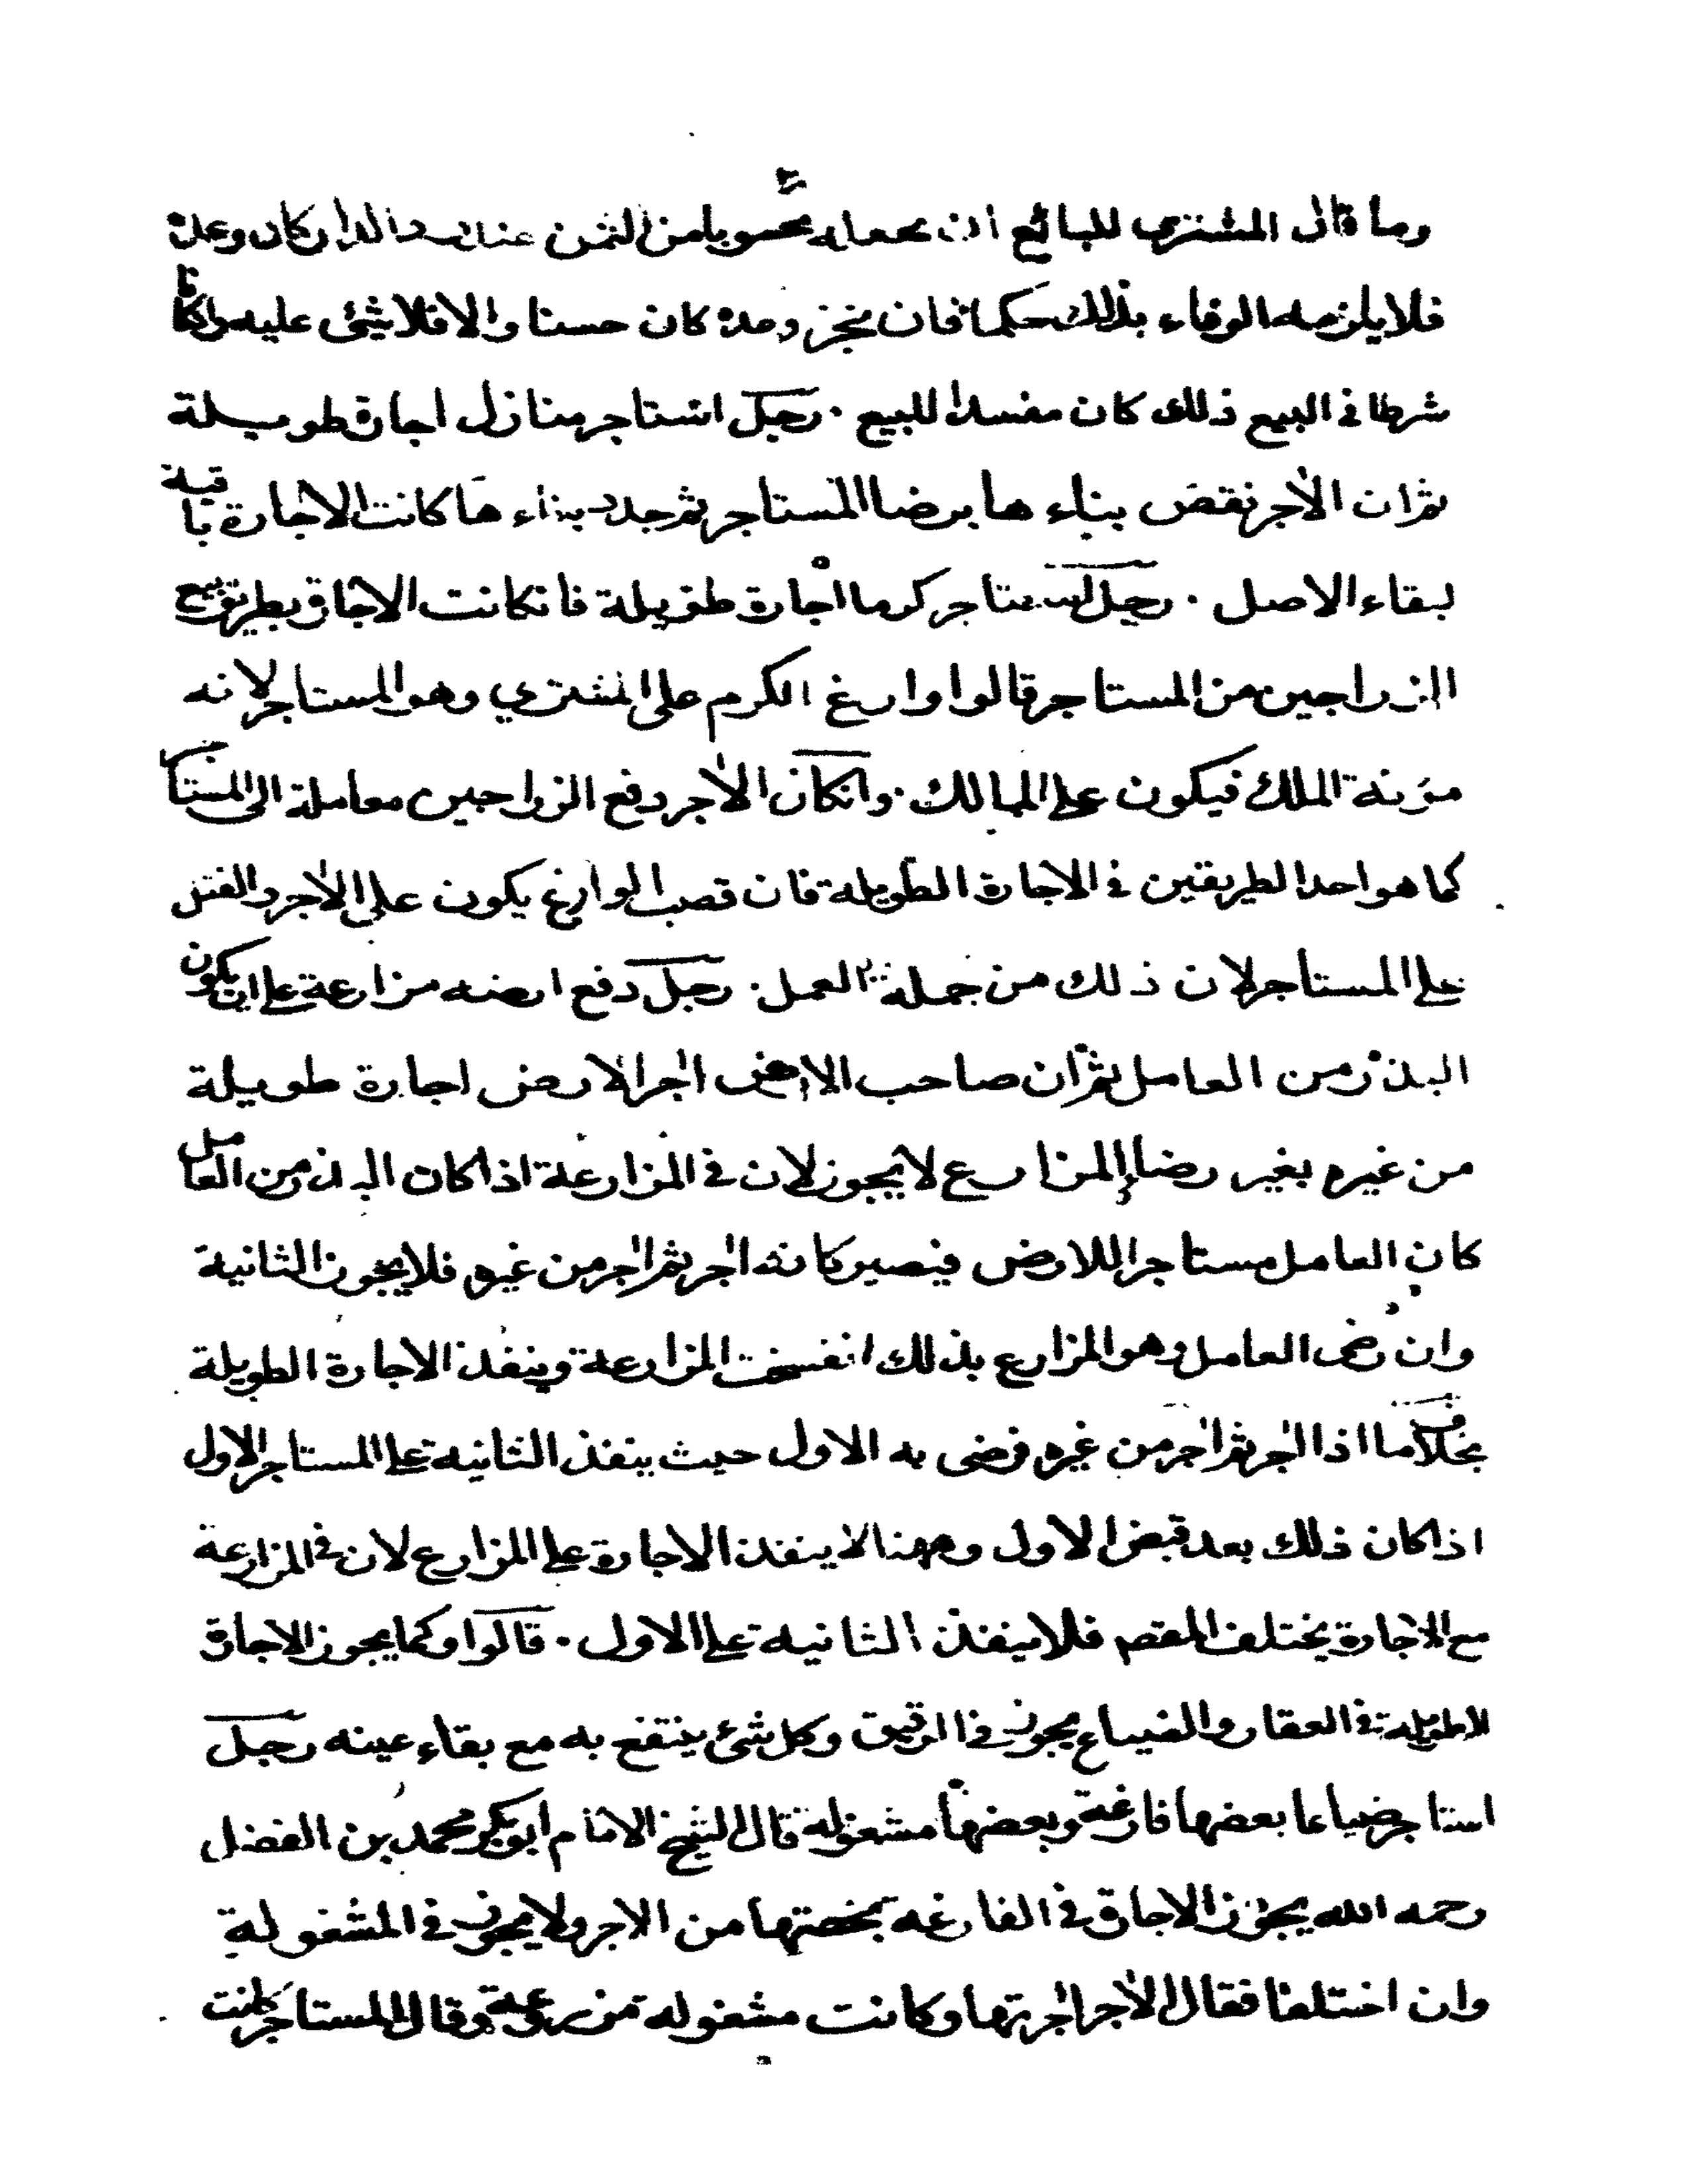 وما قال المشتري للبائع ان يجعله محسوبا من الثمن عند رد الدار كان وعدا
فلا يلزمه الوفاء بذلك حكما فان نجز وعده كان حسنا والا فلا شئ عليه ولو كا
شرطا في البيع ذلك كان مفسدا للبيع . رجل استاجر منازل اجارة طويلة
ثم ان الآجر نقض بناء ها برضا المستاجر ثم جدد بناء ها كانت الاجارة باقية
لبقاء الاصل . رجل استاجر كرما اجارة طويلة فان كانت الاجارة بطريق بيع
الزراجين من المستاجر قالوا وارغ الكرم على المشتري وهو المستاجر لانه
مؤنة الملك فيكون على المالك . وان كان الآجر دفع الزراجين معاملة الى المستا
كما هو احد الطريقين في الاجارة الطويلة فان قصب الوارغ يكون على الآجر والغتن
على المستاجر لان ذلك من جملة العمل . رجل دفع ارضه مزارعة على ان يكون
البذر من العامل ثم ان صاحب الارض آجر الارض اجارة طويلة
من غيره بغير رضا المزارع لا يجوز لان في المزارعة اذا كان البذر من العامل
كان العامل مستاجرا للارض فيصير كانه آجر ثم آجر من غيره فلا يجوز الثانية
وان رضى العامل وهو المزارع بذلك انفسخت المزارعة وينفذ الاجارة الطويلة
بخلاف ما اذا آجر ثم آجر من غيره فرضى به الاول حيث ينفذ الثانية على المستاجر الاول
اذا كان ذلك بعد قبض الاول وههنا لا ينفذ الاجارة على المزارع لان في المزارعة
مع الاجارة يختلف المقصم فلا ينفذ الثانية على الاول . قالوا وكما يجوز الاجارة
الطويلة في العقار والضياع يجوز في الرقيق وكل شئ ينتفع به مع بقاء عينه رجل
استاجر ضياعا بعضها فارغة وبعضها مشغولة قال الشيخ الامام ابو بكر محمد بن الفضل
رحمه الله يجوز الاجارة في الفارغة بحصتها من الاجر ولا يجوز في المشغولة
وان اختلفا فقال الآجر آجرتها وكانت مشغولة مزروعة وقال المستاجر كانت